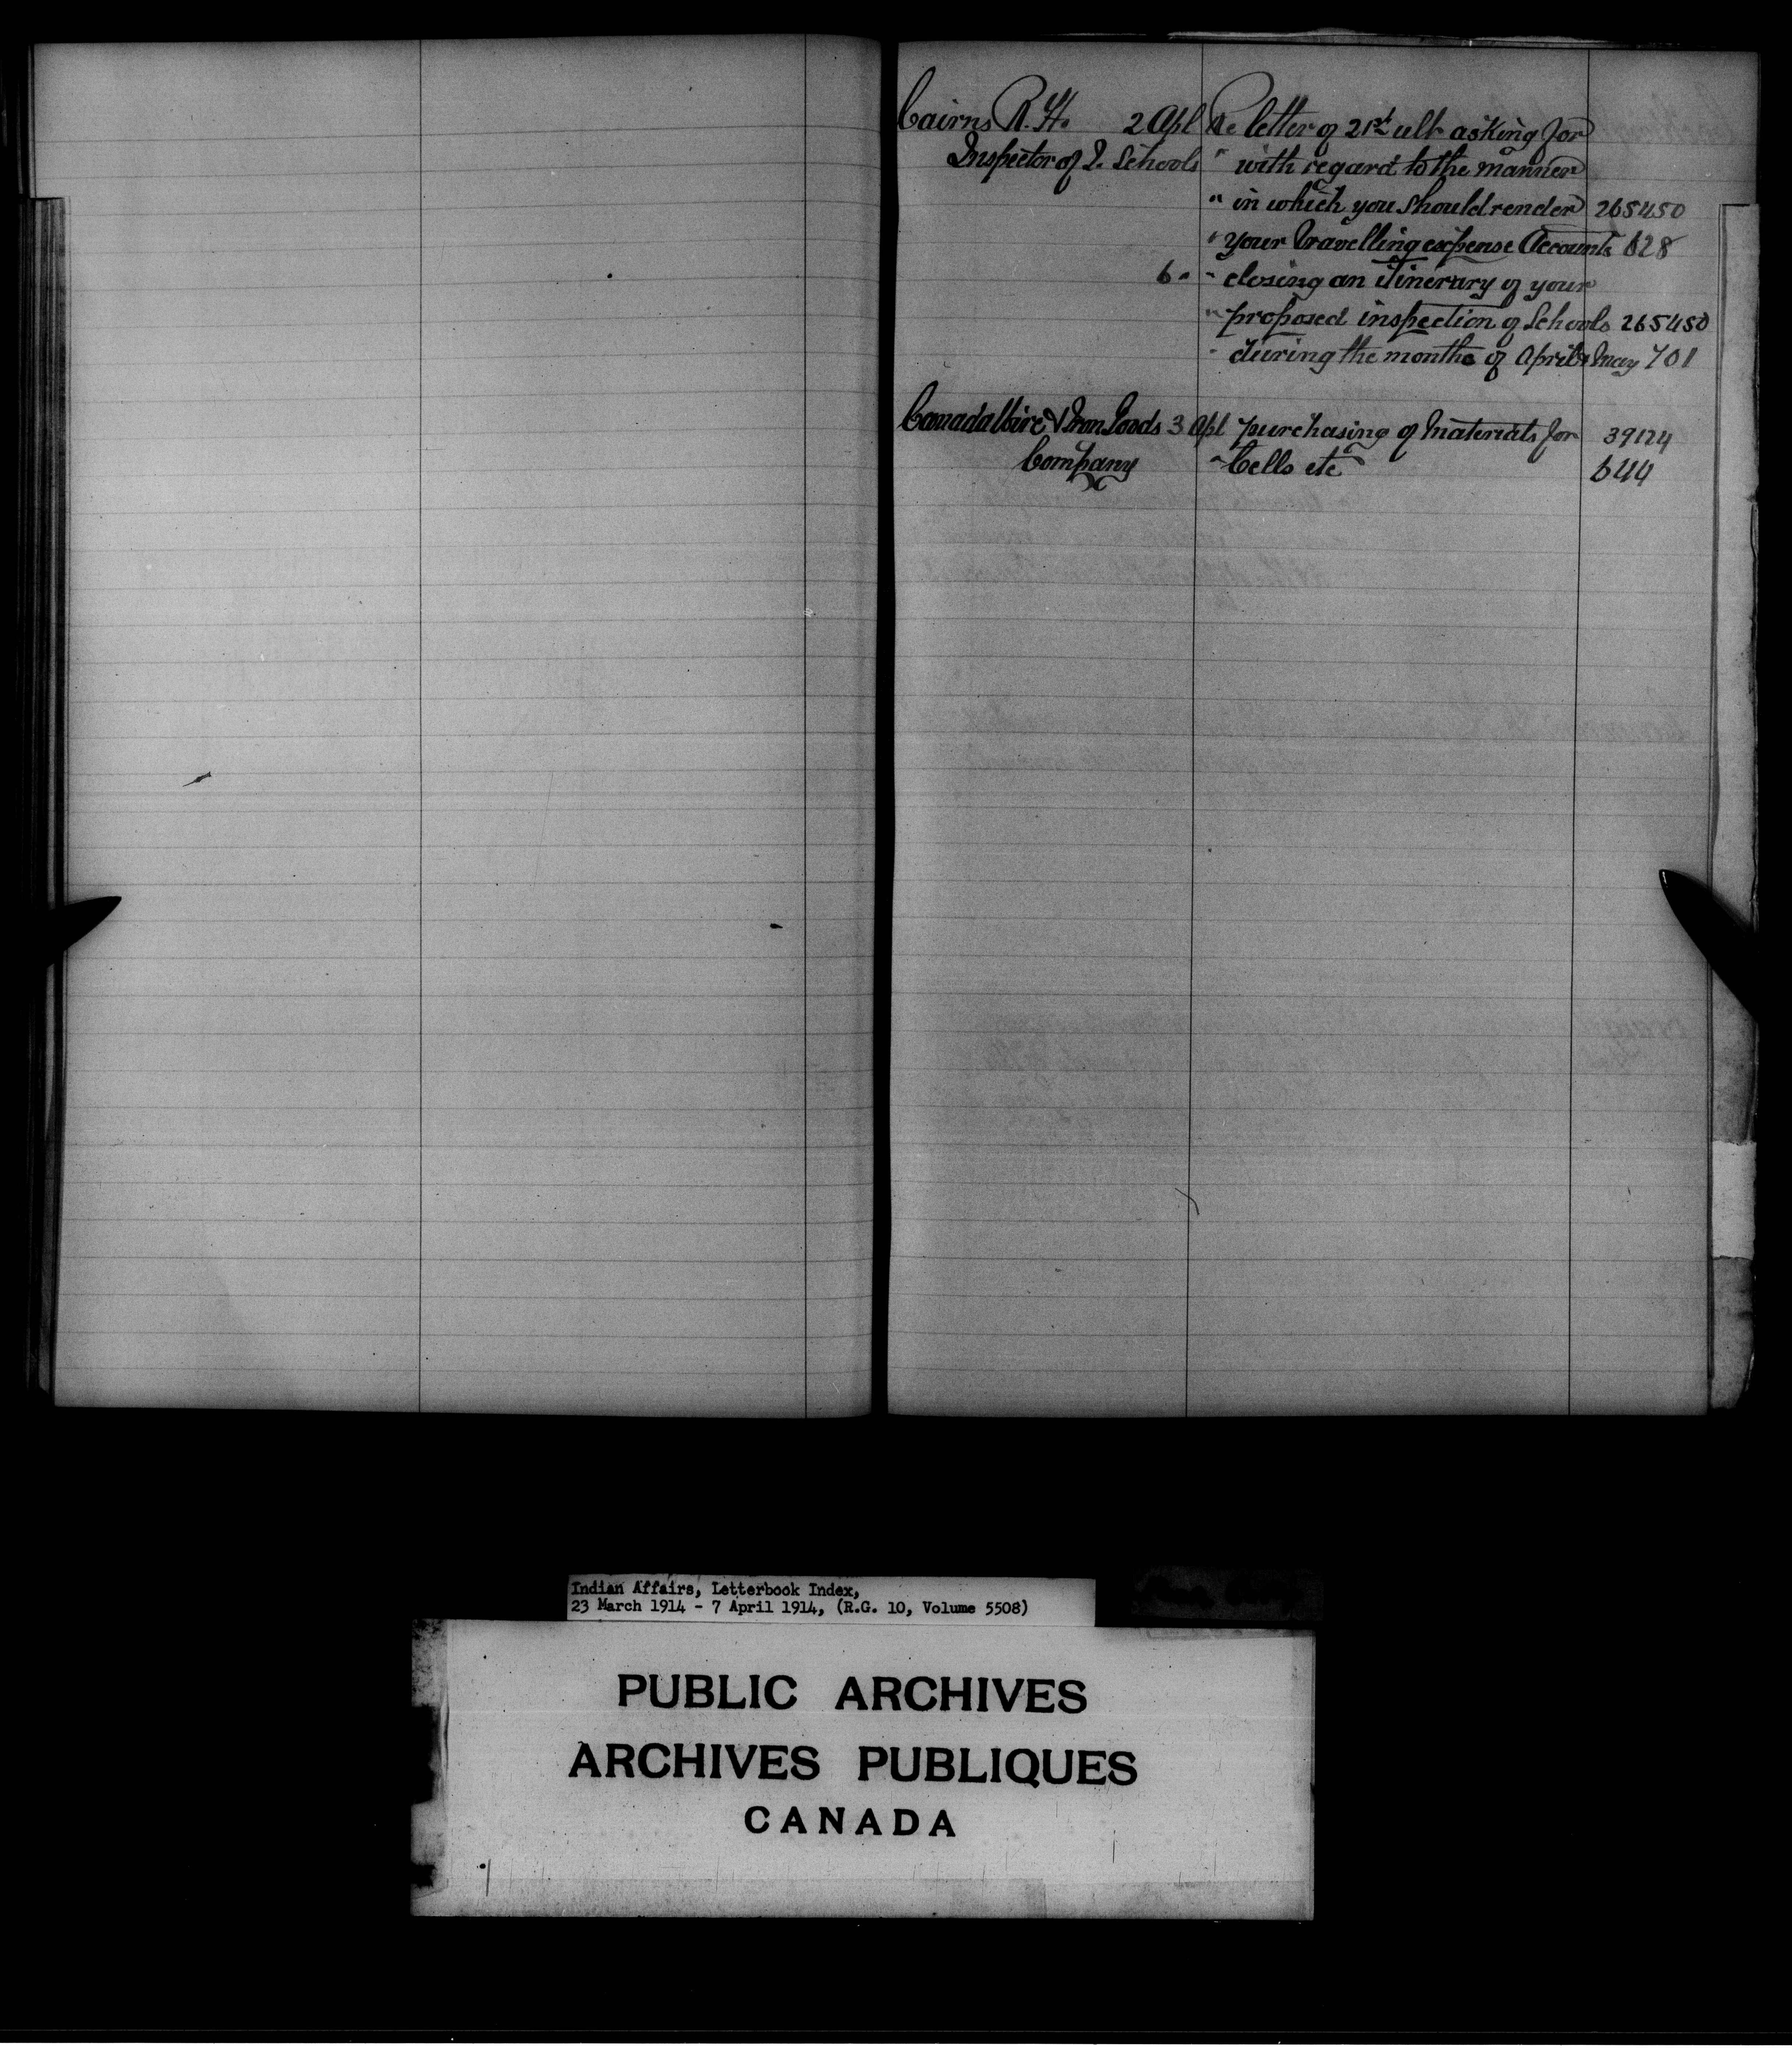 Cairns R. H. 2 Apl Re letter of 21st ult asking for
Inspector of I. Schools " with regard to the manner
" in which you should render 265450
" your travelling expense Accounts 628
6 " " closing an itinerary of your
" proposed inspection of Schools 265450
" during the months of April & May 701
Canada Wire & Iron Goods 3 Apl purchasing of materials for 39124
Company " Cells etc 644
Indian Affairs, Letterbook Index,
23 March 1914 - 7 April 1914, (R.G. 10, Volume 5508)
PUBLIC ARCHIVES
ARCHIVES PUBLIQUES
CANADA